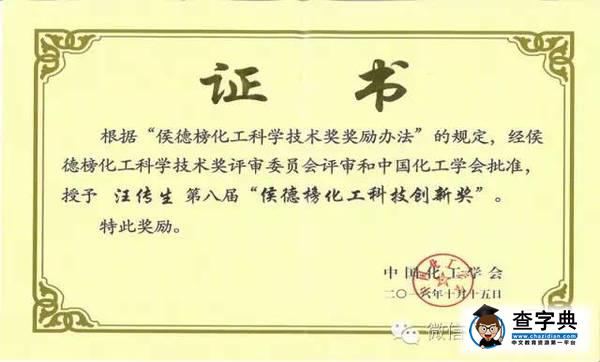 证 书
根据“侯德榜化工科学技术奖奖励办法”的规定，经侯
德榜化工科学技术奖评审委员会评审和中国化工学会批准，
授予 汪传生 第八届“侯德榜化工科技创新奖”。
特此奖励。
中国化工学会
二〇一六年十月十五日
微信
查字典
www.chazidian.com
中文教育资源第一平台